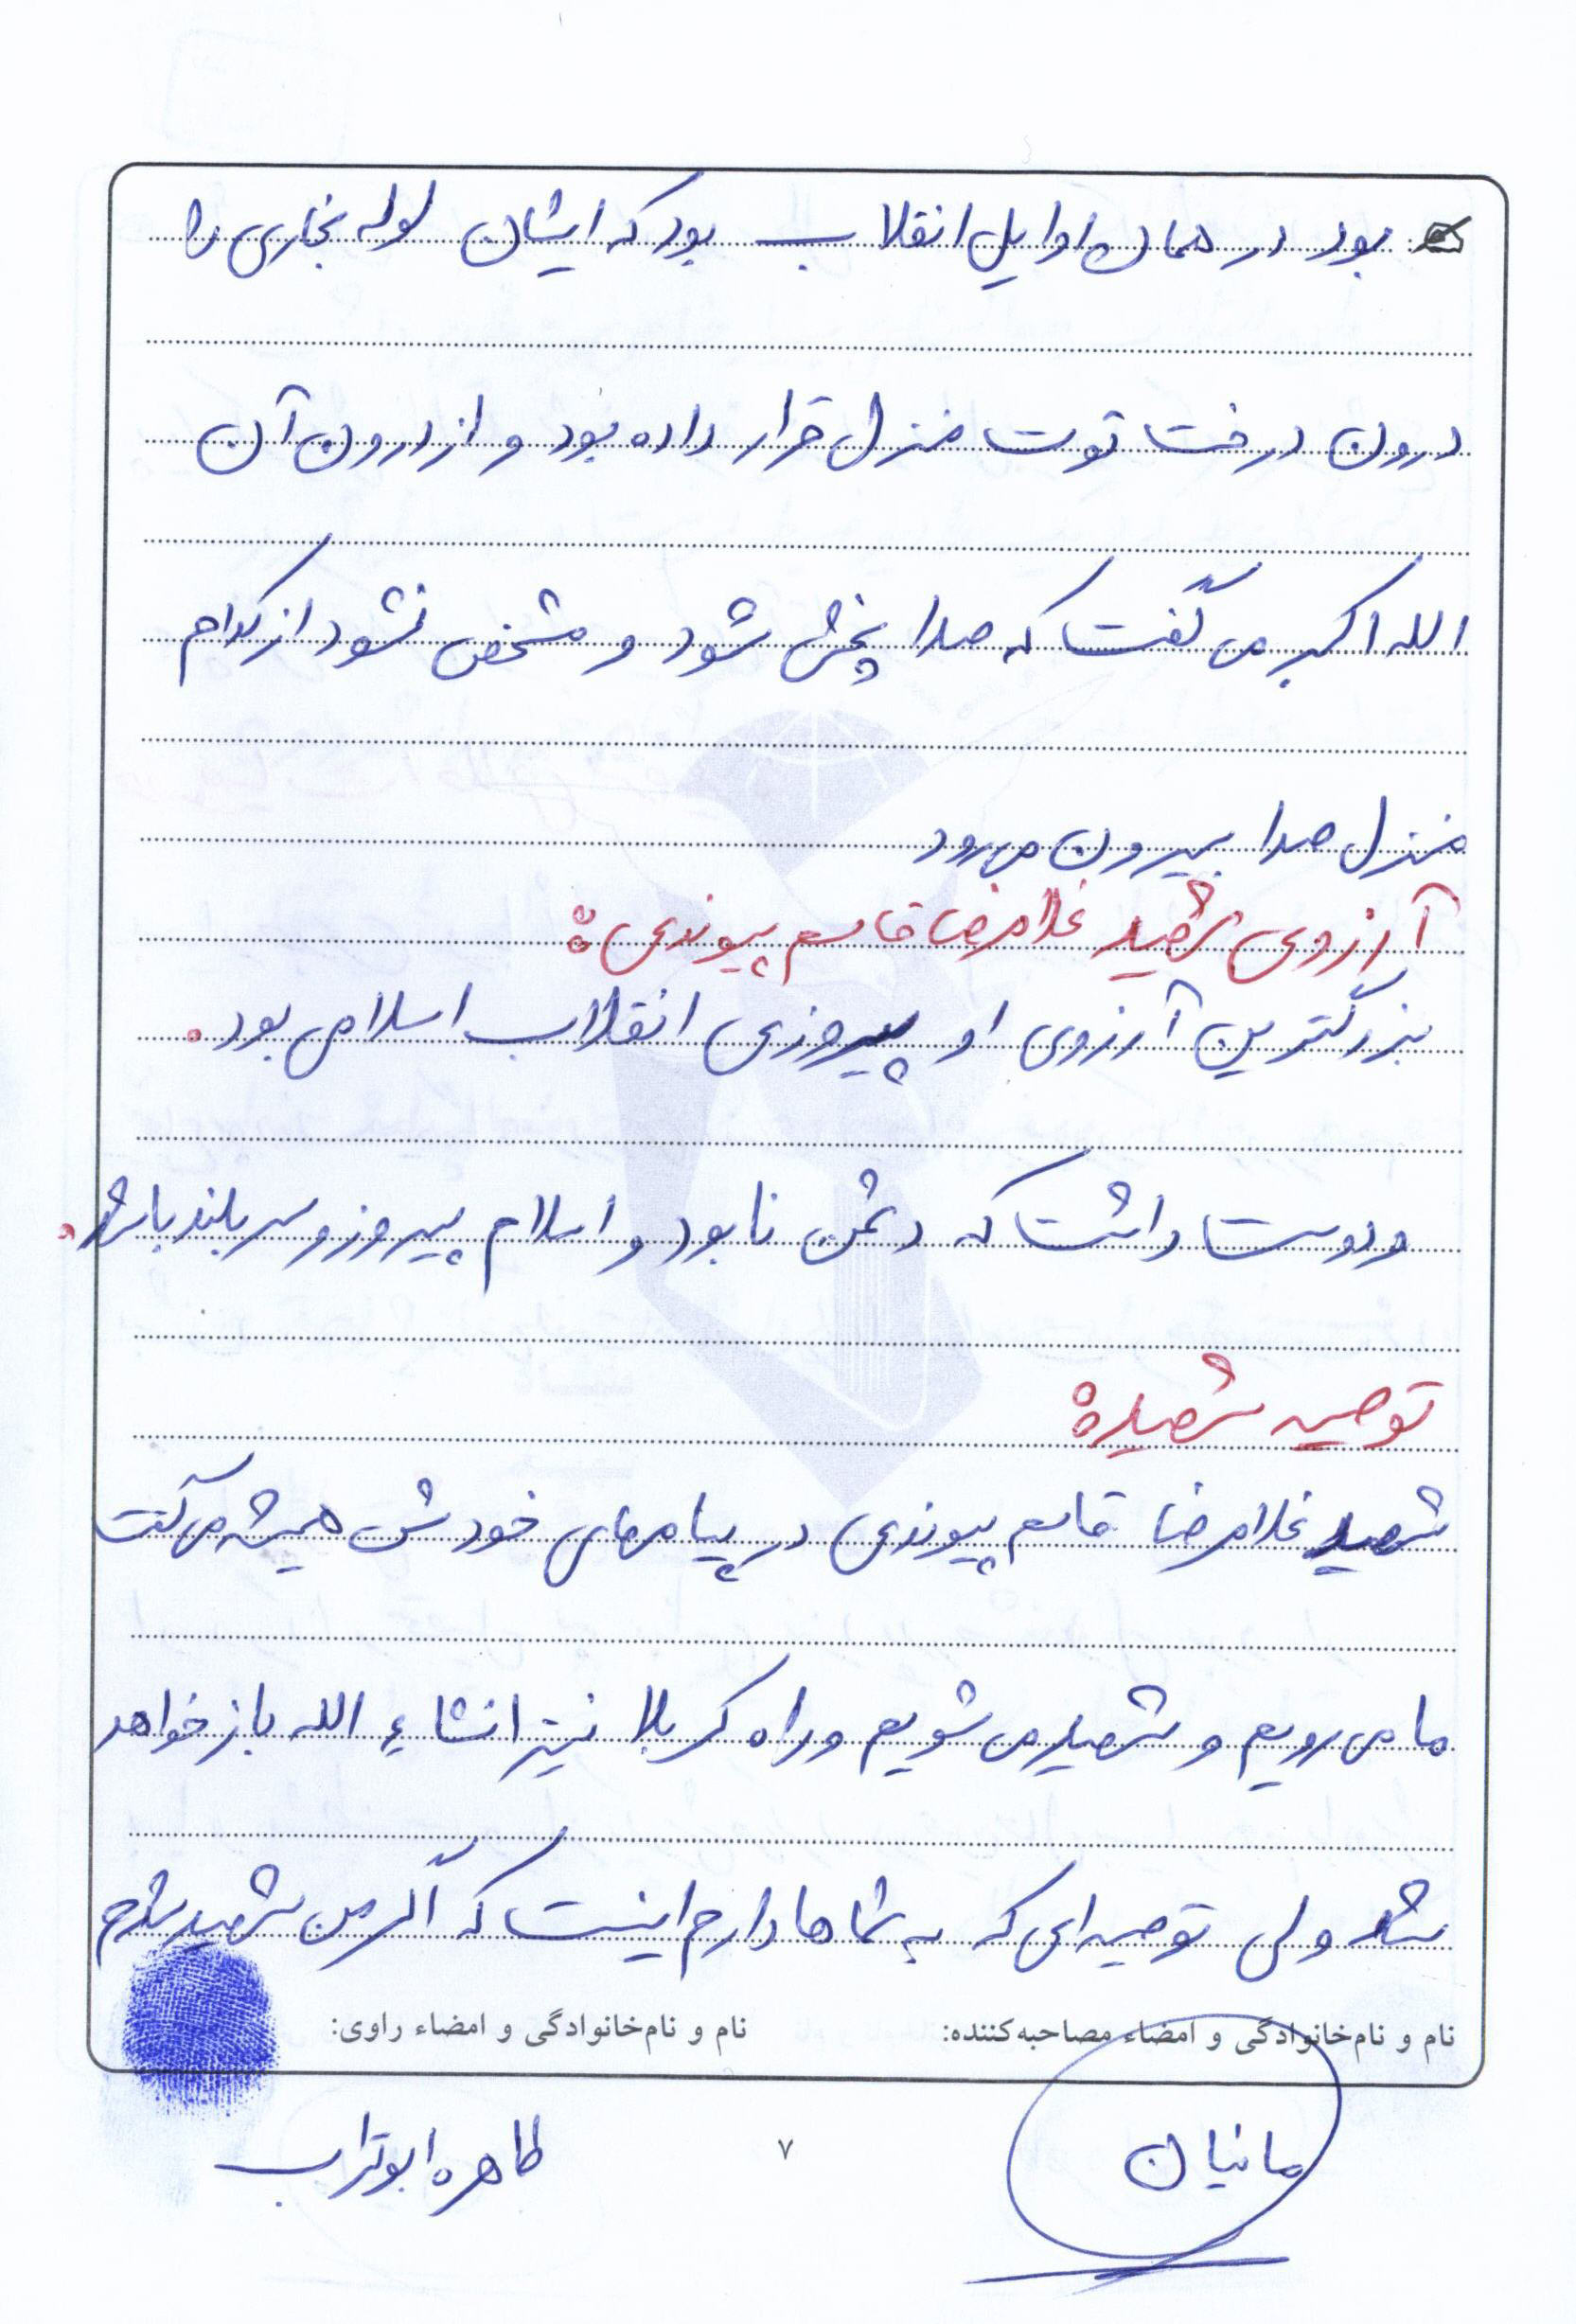 بود در همان اوایل انقلاب بود که ایشان لوله بخاری را
درون درخت توت منزل قرار داده بود و از درون آن
الله اکبر می گفت که صدا پخش شود و مشخص نشود از کدام
منزل صدا بیرون می رود
آرزوی شهید غلامرضا قاسم پیوندی:
بزرگترین آرزوی او پیروزی انقلاب اسلامی بود.
و دوست داشت که دشمن نابود و اسلام پیروز و سربلند باشد.
توصیه شهید:
شهید غلامرضا قاسم پیوندی در پیامهای خودش همیشه می گفت
ما می رویم و شهید می شویم و راه کربلا نیز انشاء الله باز خواهد
شد ولی توصیه ای که به شماها دارم اینست که اگر من شهید شدم
نام و نام‌خانوادگی و امضاء مصاحبه‌کننده:
نام و نام‌خانوادگی و امضاء راوی:
مانیان
طاهره ابوتراب
۷